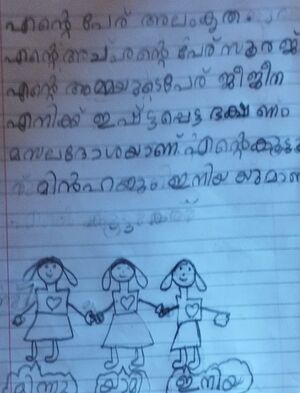 എന്റെ പേര് അലംകൃത
എന്റെ അച്ഛന്റെ പേര് സൂരജ്
എന്റെ അമ്മയുടെ പേര് ജീജീന
എനിക്ക് ഇഷ്ട്ടപ്പെട്ട ഭക്ഷണം
മസാലദോശയാണ്. എന്റെ കൂട്ടു
ഇനിയ യുമാണ
യാമി ഇനിയ